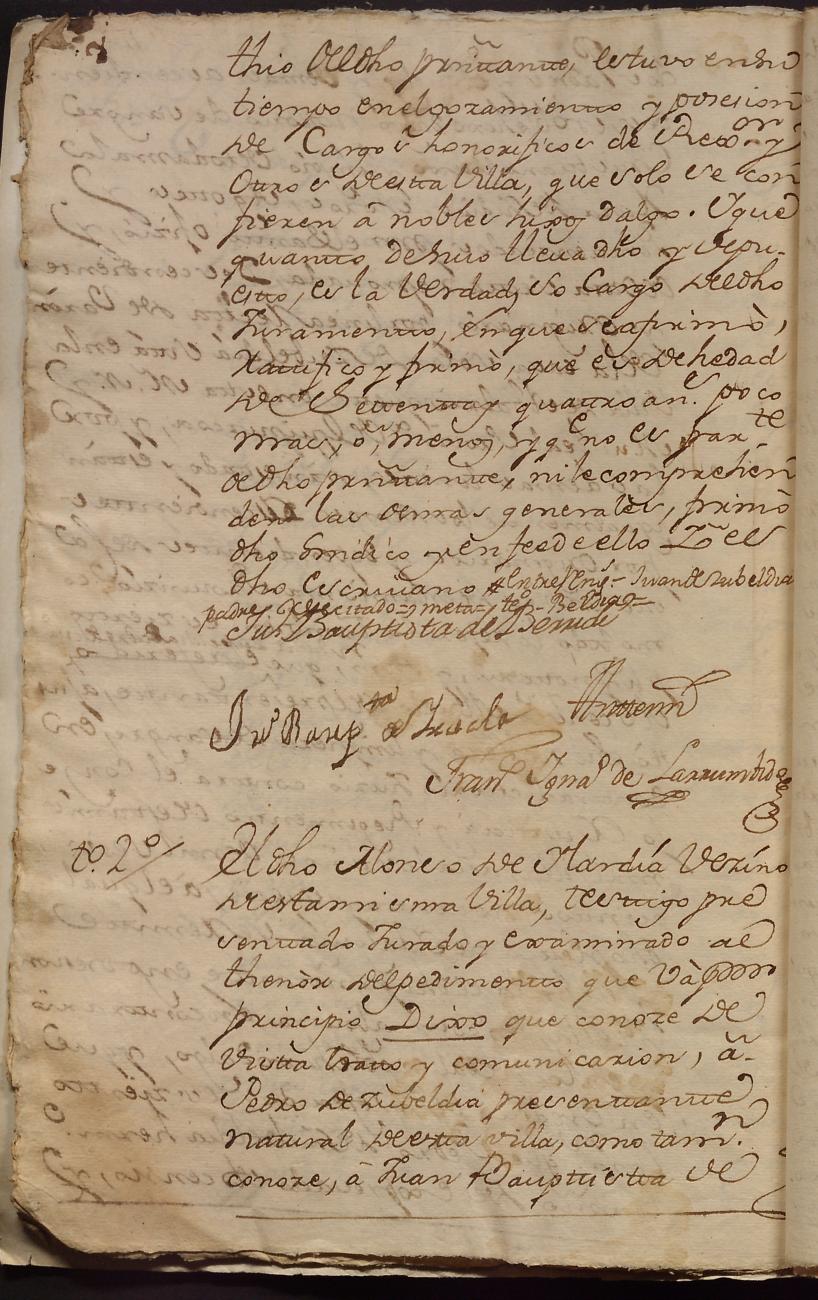 thio del dho pressentante, estuvo en su
tiempo en el gozamiento y posesion
de Cargos honorificos de Rexor. y
Otros de esta Villa, que solo se con
fieren â nobles hixos dalgo. Y que
quanto de suso lleva dho y depu-
esto, es la Verdad, so Cargo del dho
Juramento, en que se afirmò,
Ratifico y firmò, que es de hedad
de Settenta y quatro añs. poco
mas, ò, menos, y qe no es parte
de dho pressentante, ni le comprehen
den las demas generales, firmò
dho Sindico y en fee de ello Yo el
dho escrivano # entre Reng.- Juan de Zubeldia
padre del citado= y meta= to - Beldia=
Jun Bauptista de
Jun Baupta de
Antemi
Franco Ignao de Larrumbide
to. 2o El dho Alonso de Mardia Vezino
de esta misma Villa, testigo pre
sentado Jurado y examinado al
thenòr del pedimento que và por
principio Dixo que conoze de
Vista trato y comunicazion, â-
Pedro de Zubeldia presentante
natural de esta villa, como tamn.
conoze, â Juan Bauptista de